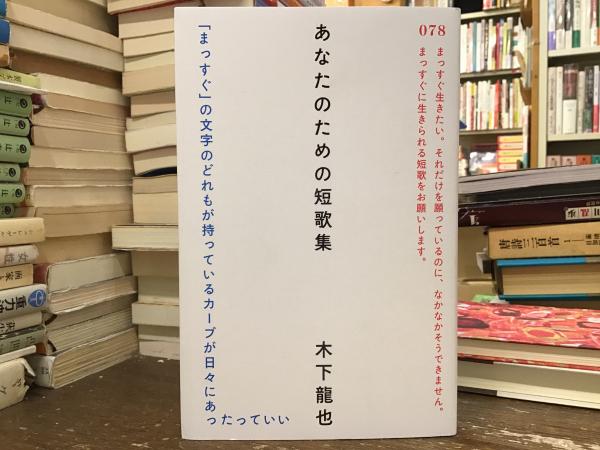 078
まっすぐ生きたい。それだけを願っているのに、なかなかそうできません。
まっすぐに生きられる短歌をお願いします。
あなたのための短歌集
木下龍也
「まっすぐ」の文字のどれもが持っているカーブが日々にあったっていい
唐詩三百首